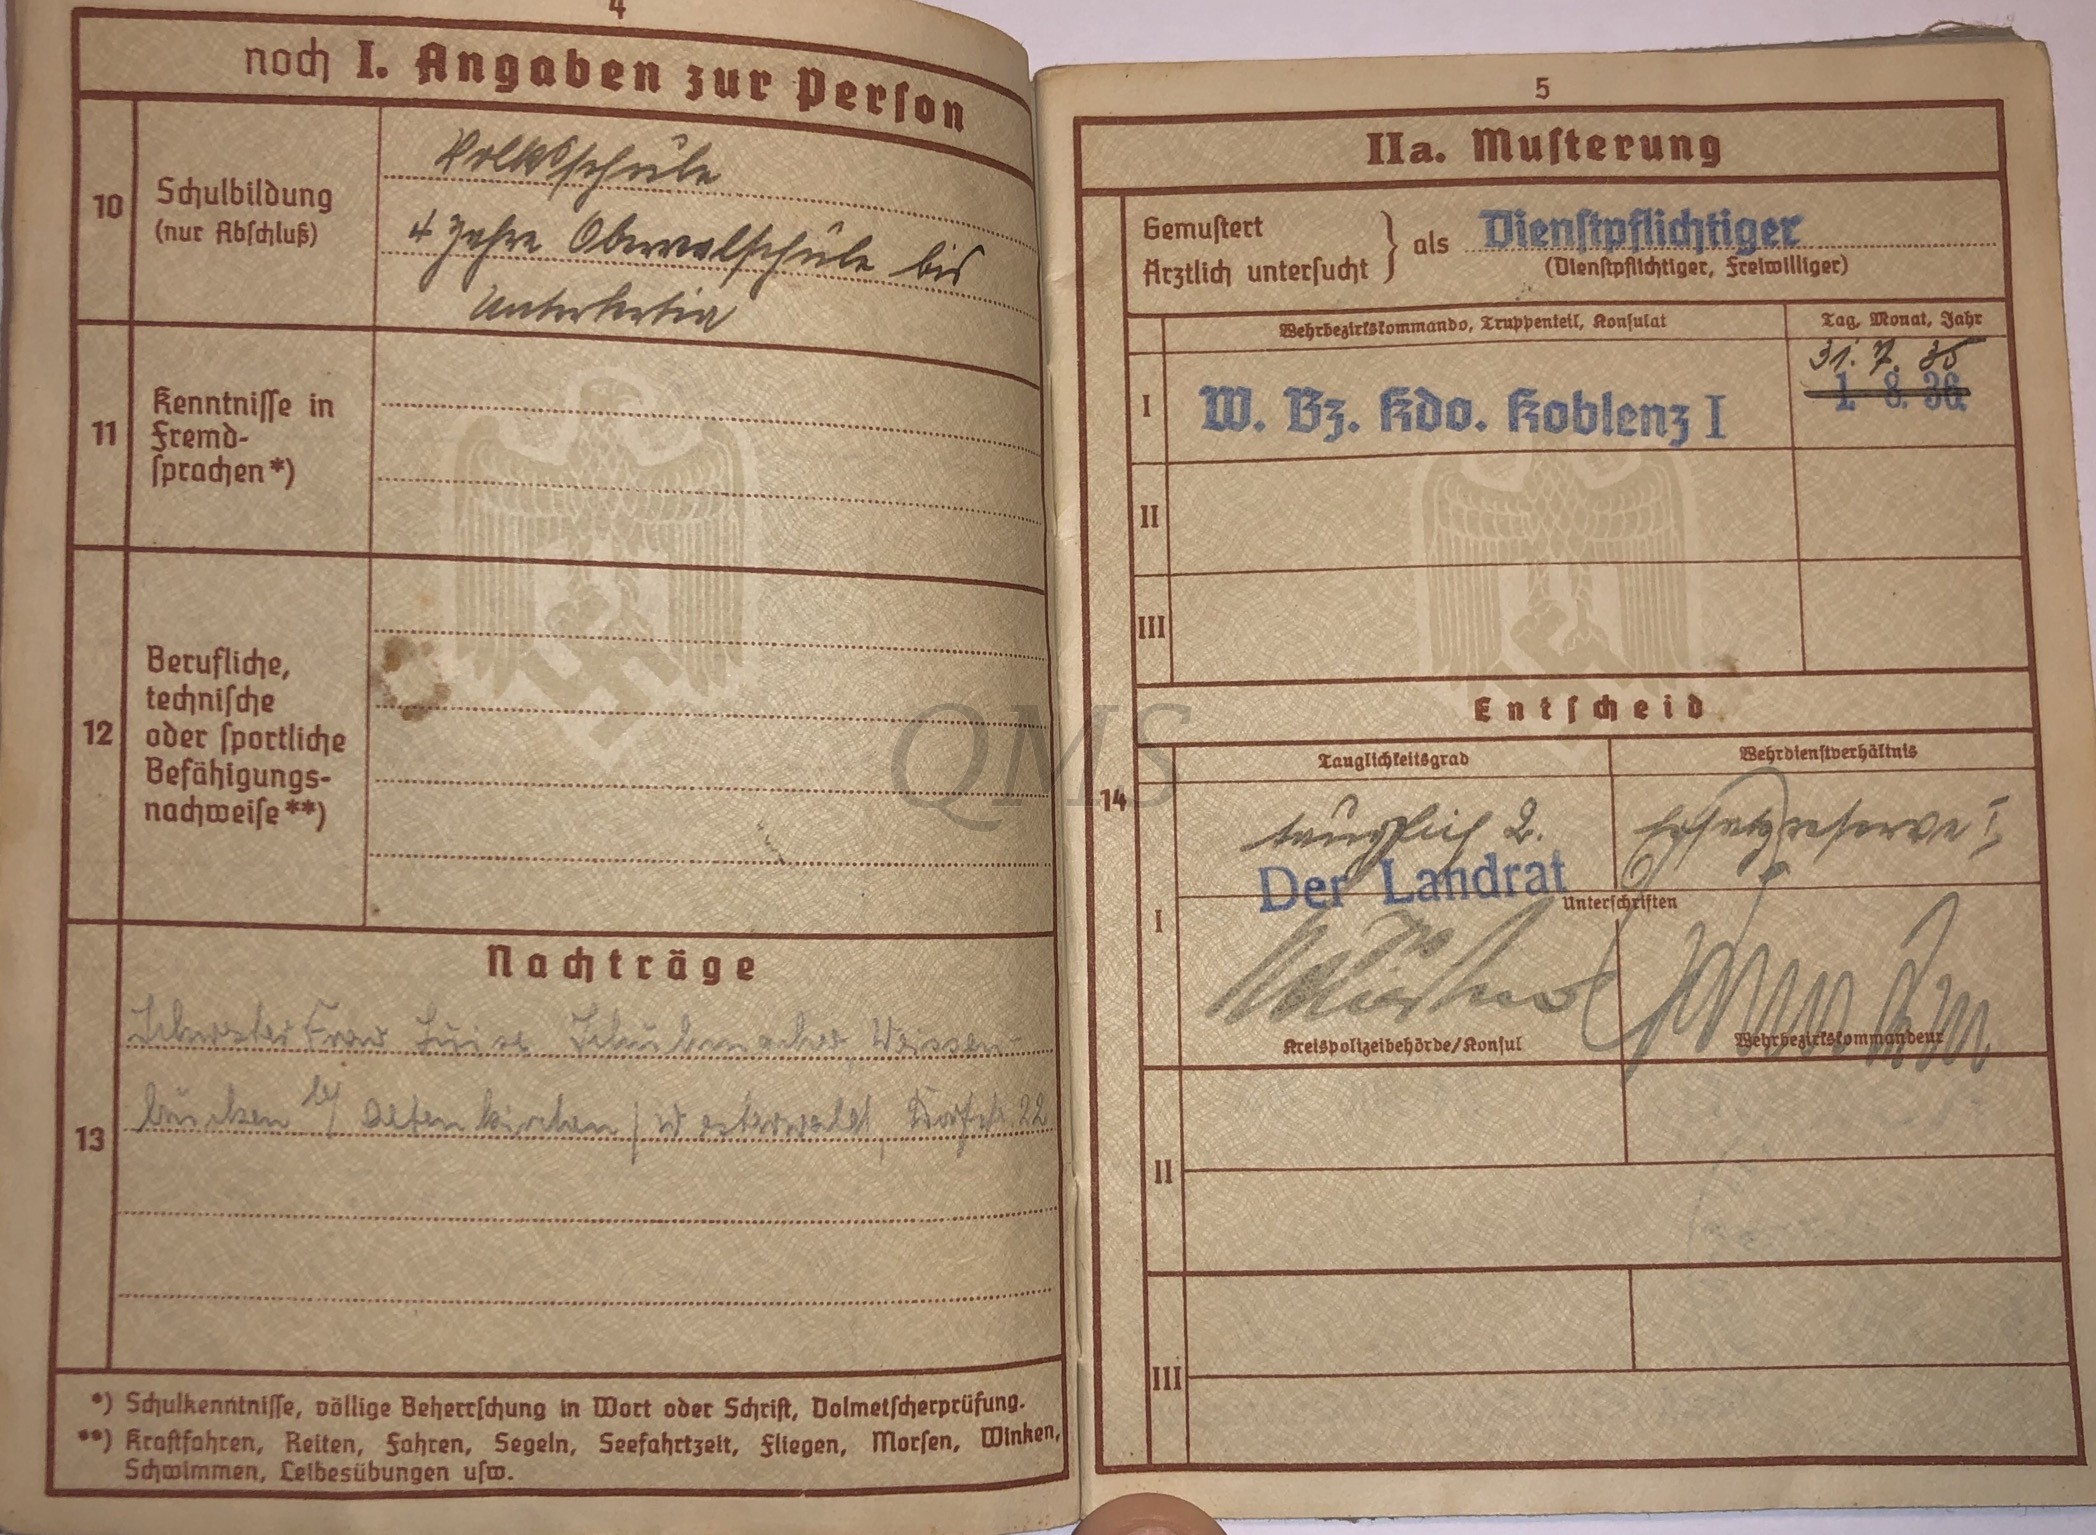 4
noch I. Angaben zur Person
10
Schulbildung
(nur Abschluß)
Volksschule
4 Jahre Oberrealschule bis
Untertertia
11
Kenntnisse in
Fremd-
sprachen*)
12
Berufliche,
technische
oder sportliche
Befähigungs-
nachweise**)
13
Nachträge
Schwester Frau Luise Schuhmacher, Weissen-
brücken b/ Altenkirchen / Westerwald, Dorfstr. 22
*) Schulkenntnisse, völlige Beherrschung in Wort oder Schrift, Dolmetscherprüfung.
**) Kraftfahren, Reiten, Fahren, Segeln, Seefahrtzeit, Fliegen, Morsen, Winken,
Schwimmen, Leibesübungen usw.
QMS
5
IIa. Musterung
Gemustert
Ärztlich untersucht
als Dienstpflichtiger
(Dienstpflichtiger, Freiwilliger)
Wehrbezirkskommando, Truppenteil, Konsulat
Tag, Monat, Jahr
31. 7. 35
I
W. Bz. Kdo. Koblenz I
1 8. 36
II
III
Entscheid
14
Tauglichkeitsgrad
Wehrdienstverhältnis
tauglich 2.
Ersatzreserve I
I
Der Landrat
Unterschriften
Kreispolizeibehörde/Konsul
Wehrbezirkskommandeur
II
III